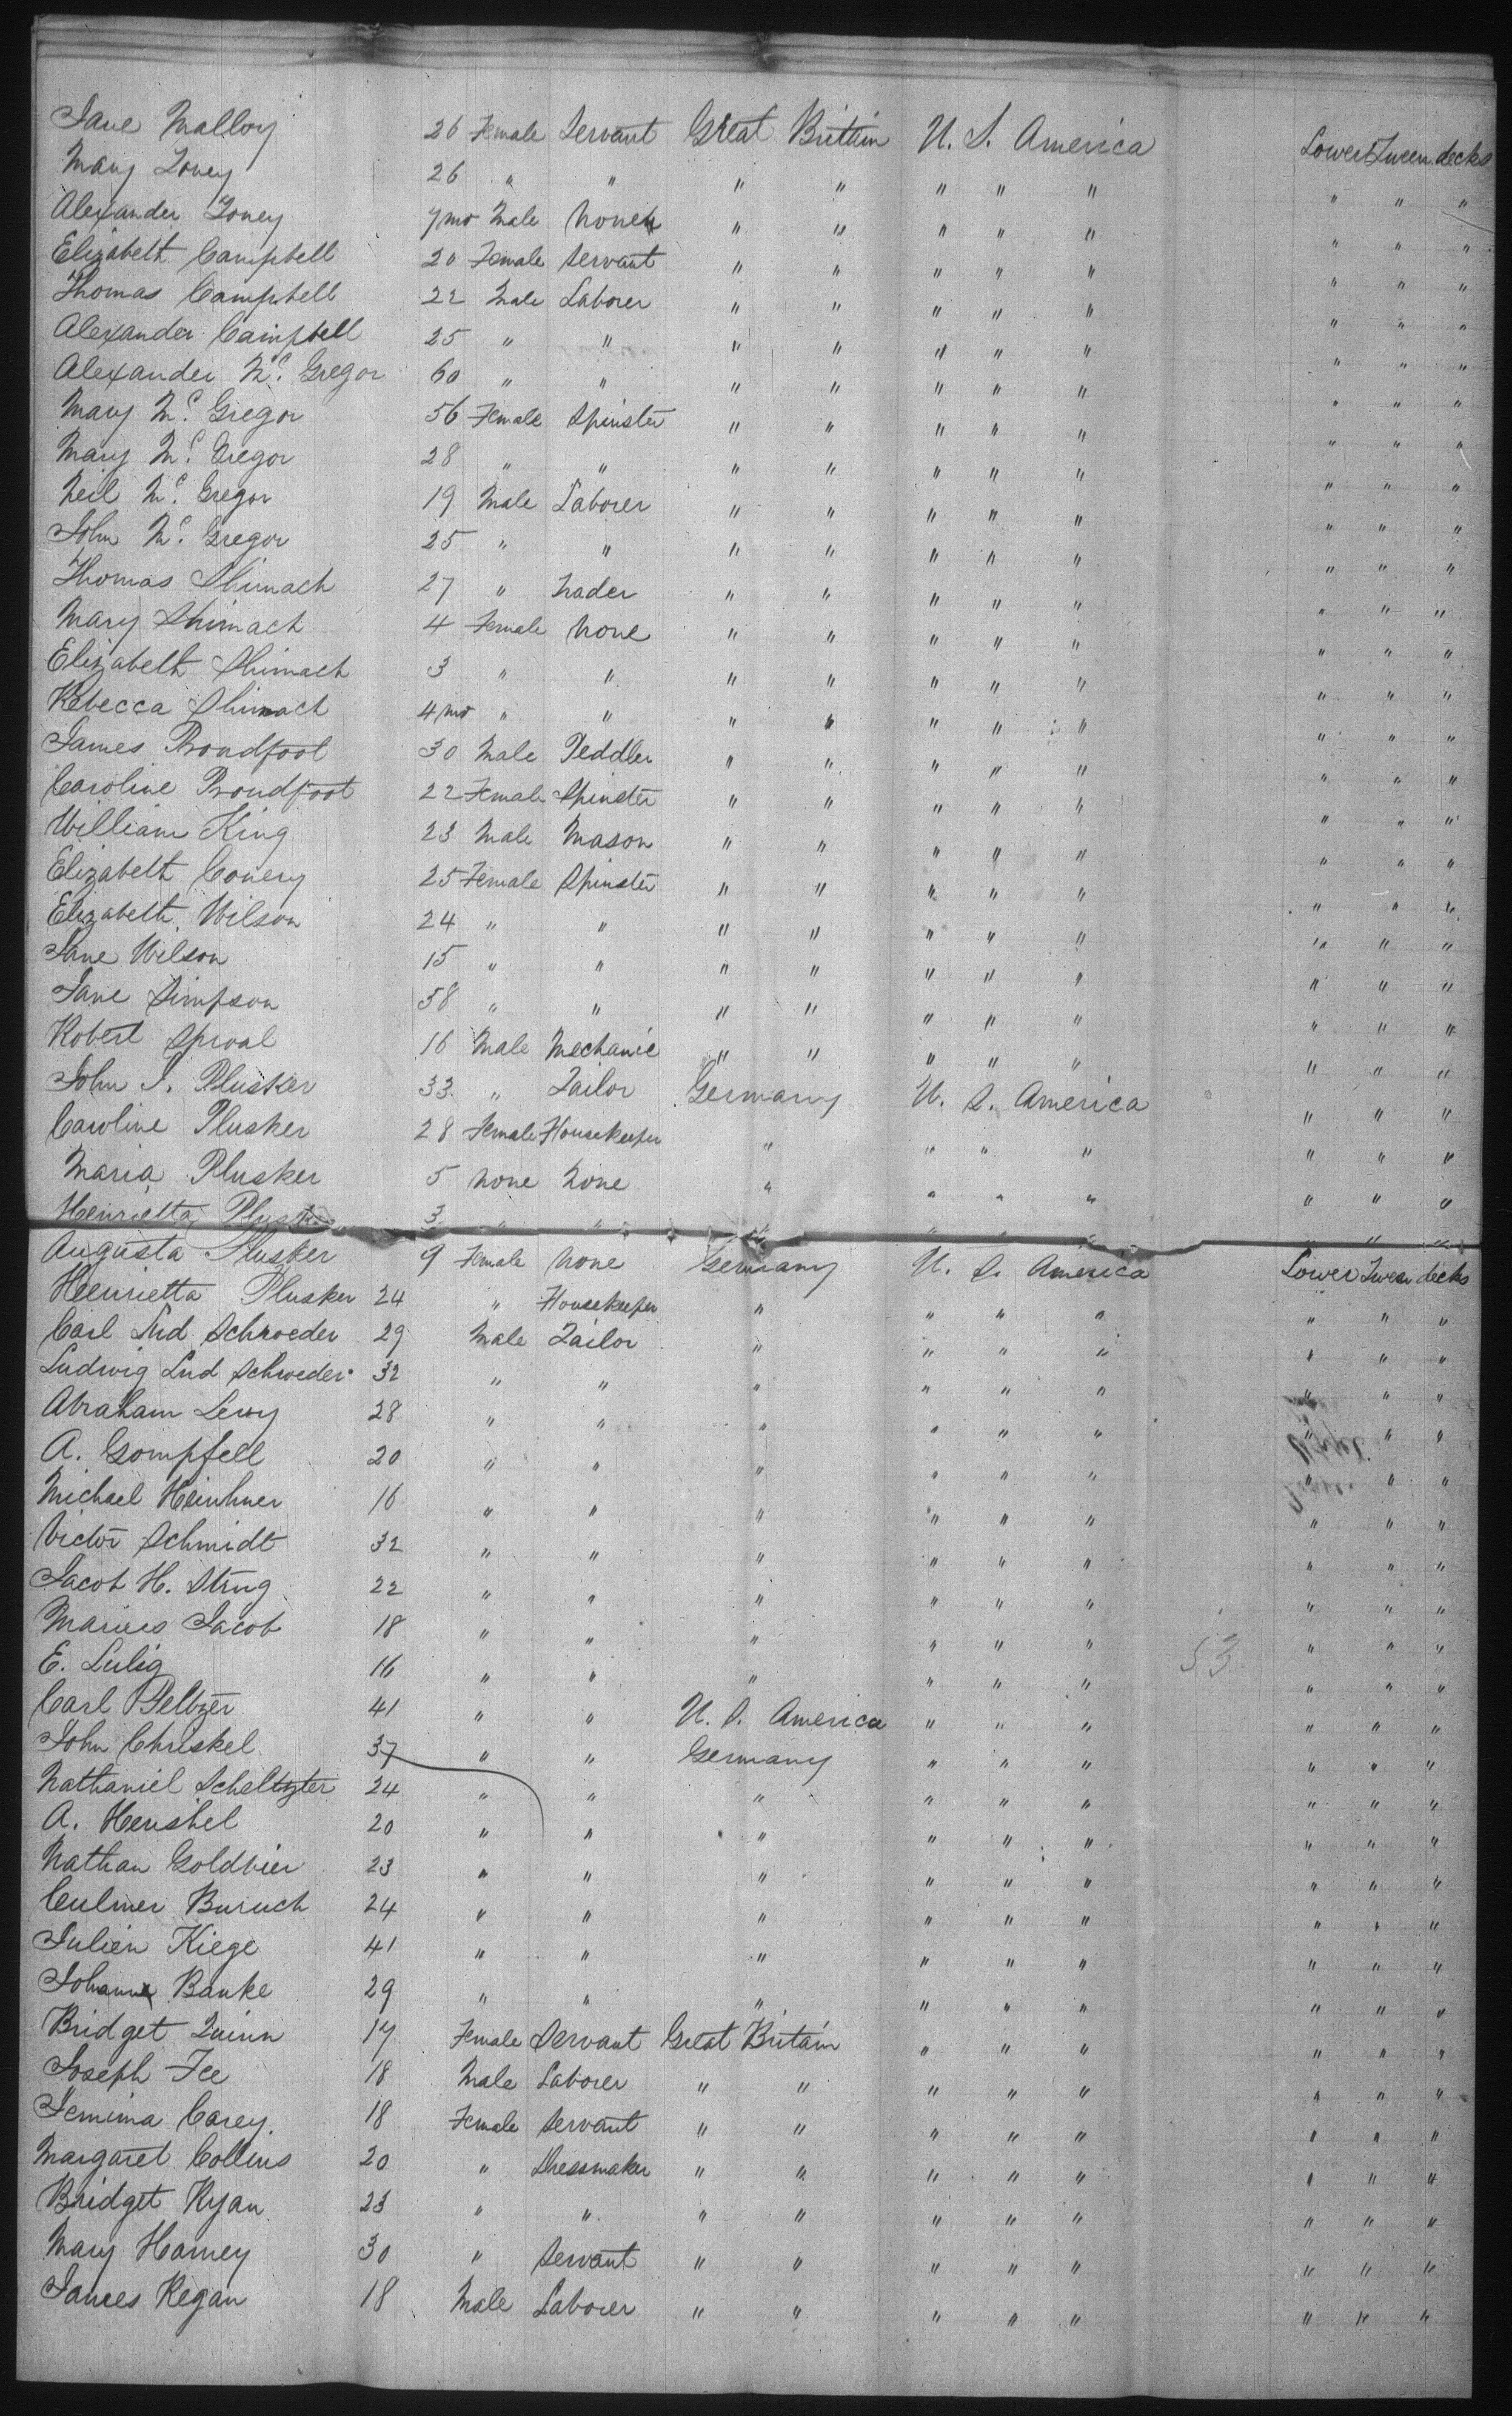 Jane Malloy 26 Female Servant Great Britain U. S. America Lower Tween decks
Mary Toney 26 " " " " " " " " " "
Alexander Toney 7 mo Male None " " " " " " " "
Elizabeth Campbell 20 Female Servant " " " " " " " "
Thomas Campbell 22 Male Laborer " " " " " " " "
Alexander Campbell 25 " " " " " " " " " "
Alexander Mc. Gregor 60 " " " " " " " " " "
Mary Mc. Gregor 56 Female Spinster " " " " " " " "
Mary Mc. Gregor 28 " " " " " " " " " "
Neil Mc. Gregor 19 Male Laborer " " " " " " " "
John Mc. Gregor 25 " " " " " " " " " "
Thomas Shimach 27 " Trader " " " " " " " "
Mary Shimach 4 Female None " " " " " " " "
Elizabeth Shimach 3 " " " " " " " " " "
Rebecca Shimach 4 mo " " " " " " " " " "
James Proudfoot 30 Male Peddler " " " " " " " "
Caroline Proudfoot 22 Female Spinster " " " " " " " "
William King 23 Male Mason " " " " " " " "
Elizabeth Conery 25 Female Spinster " " " " " " " "
Elizabeth Wilson 24 " " " " " " " " " "
Jane Wilson 15 " " " " " " " " " "
Jane Simpson 58 " " " " " " " " " "
Robert Sproal 16 Male Mechanic " " " " " " " "
John J. Plusker 33 " Tailor Germany U. S. America " " "
Caroline Plusker 28 Female Housekeeper " " " " " " "
Maria Plusker 5 None None " " " " " " "
Henrietta Plusker 3 " " " " " " " " "
Augusta Plusker 9 Female None Germany U. S. America Lower Tween decks
Henrietta Plusker 24 " Housekeeper " " " " " " "
Carl Lud Schroeder 29 Male Tailor " " " " " " "
Ludwig Lud Schroeder 32 " " " " " " " " "
Abraham Levy 28 " " " " " " " " "
A. Gompfell 20 " " " " " " " " "
Michael 16 " " " " " " " " "
Victor Schmidt 32 " " " " " " " " "
Jacob H. Strug 22 " " " " " " " " "
Marius Jacob 18 " " " " " " " " "
E. Lulig 16 " " " " " " " " "
53
Carl Peltzer 41 " " U. S. America " " " " " "
John Chriskel 37 " " Germany " " " " " "
Nathaniel Scheltzter 24 " " " " " " " " "
A. Henshel 20 " " " " " " " " "
Nathan Goldvier 23 " " " " " " " " "
Culmer Buruch 24 " " " " " " " " "
Julien Kiege 41 " " " " " " " " "
Johann Banke 29 " " " " " " " " "
Bridget Quinn 17 Female Servant Great Britain " " " " " "
Joseph Fee 18 Male Laborer " " " " " " " "
Jemima Carey 18 Female Servant " " " " " " " "
Margaret Collins 20 " Dressmaker " " " " " " " "
Bridget Ryan 23 " " " " " " " " " "
Mary Harney 30 " Servant " " " " " " " "
James Regan 18 Male Laborer " " " " " " " "